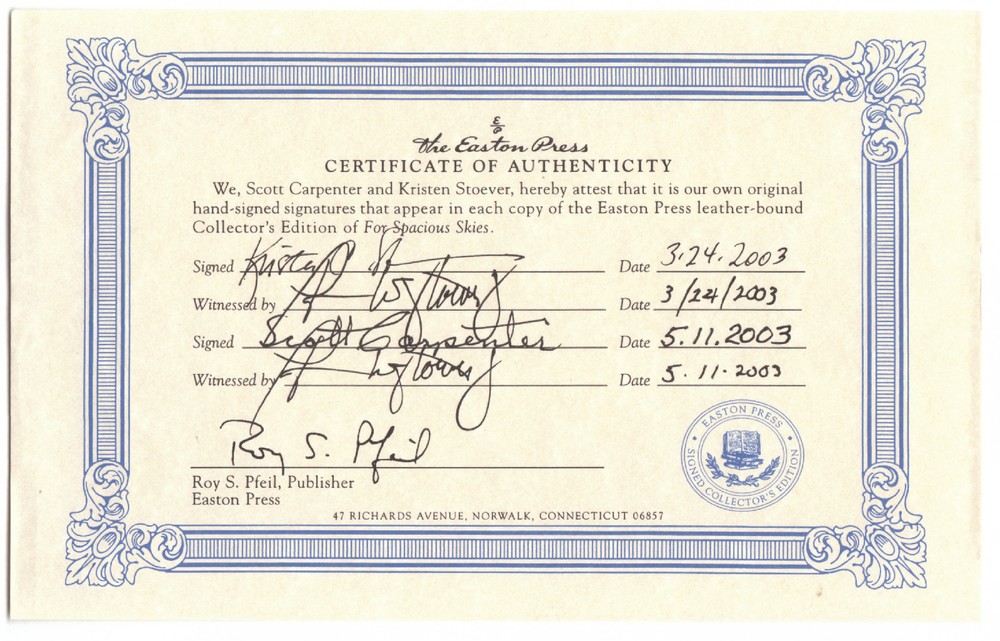 E
P
the Easton Press
CERTIFICATE OF AUTHENTICITY
We, Scott Carpenter and Kristen Stoever, hereby attest that it is our own original
hand-signed signatures that appear in each copy of the Easton Press leather-bound
Collector's Edition of For Spacious Skies.
Signed Date 3.24.2003
Witnessed by Date 3/24/2003
Signed Scott Carpenter Date 5.11.2003
Witnessed by Date 5.11.2003
Roy S. Pfeil
Roy S. Pfeil, Publisher
Easton Press
EASTON PRESS
SIGNED COLLECTOR'S EDITION
47 RICHARDS AVENUE, NORWALK, CONNECTICUT 06857